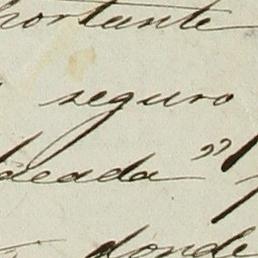 portante
seguro
ceada”
donde